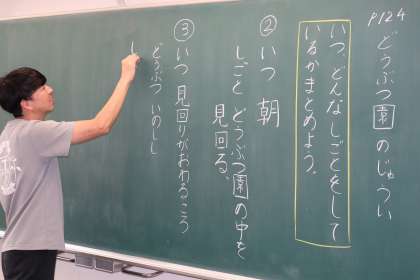 P124
どうぶつ園のじゅうい
いつ、どんなしごとをして
いるかまとめよう。
② いつ 朝
しごと どうぶつ園の中を
見回る。
③ いつ 見回りがおわるころ
どうぶつ いのしし
し